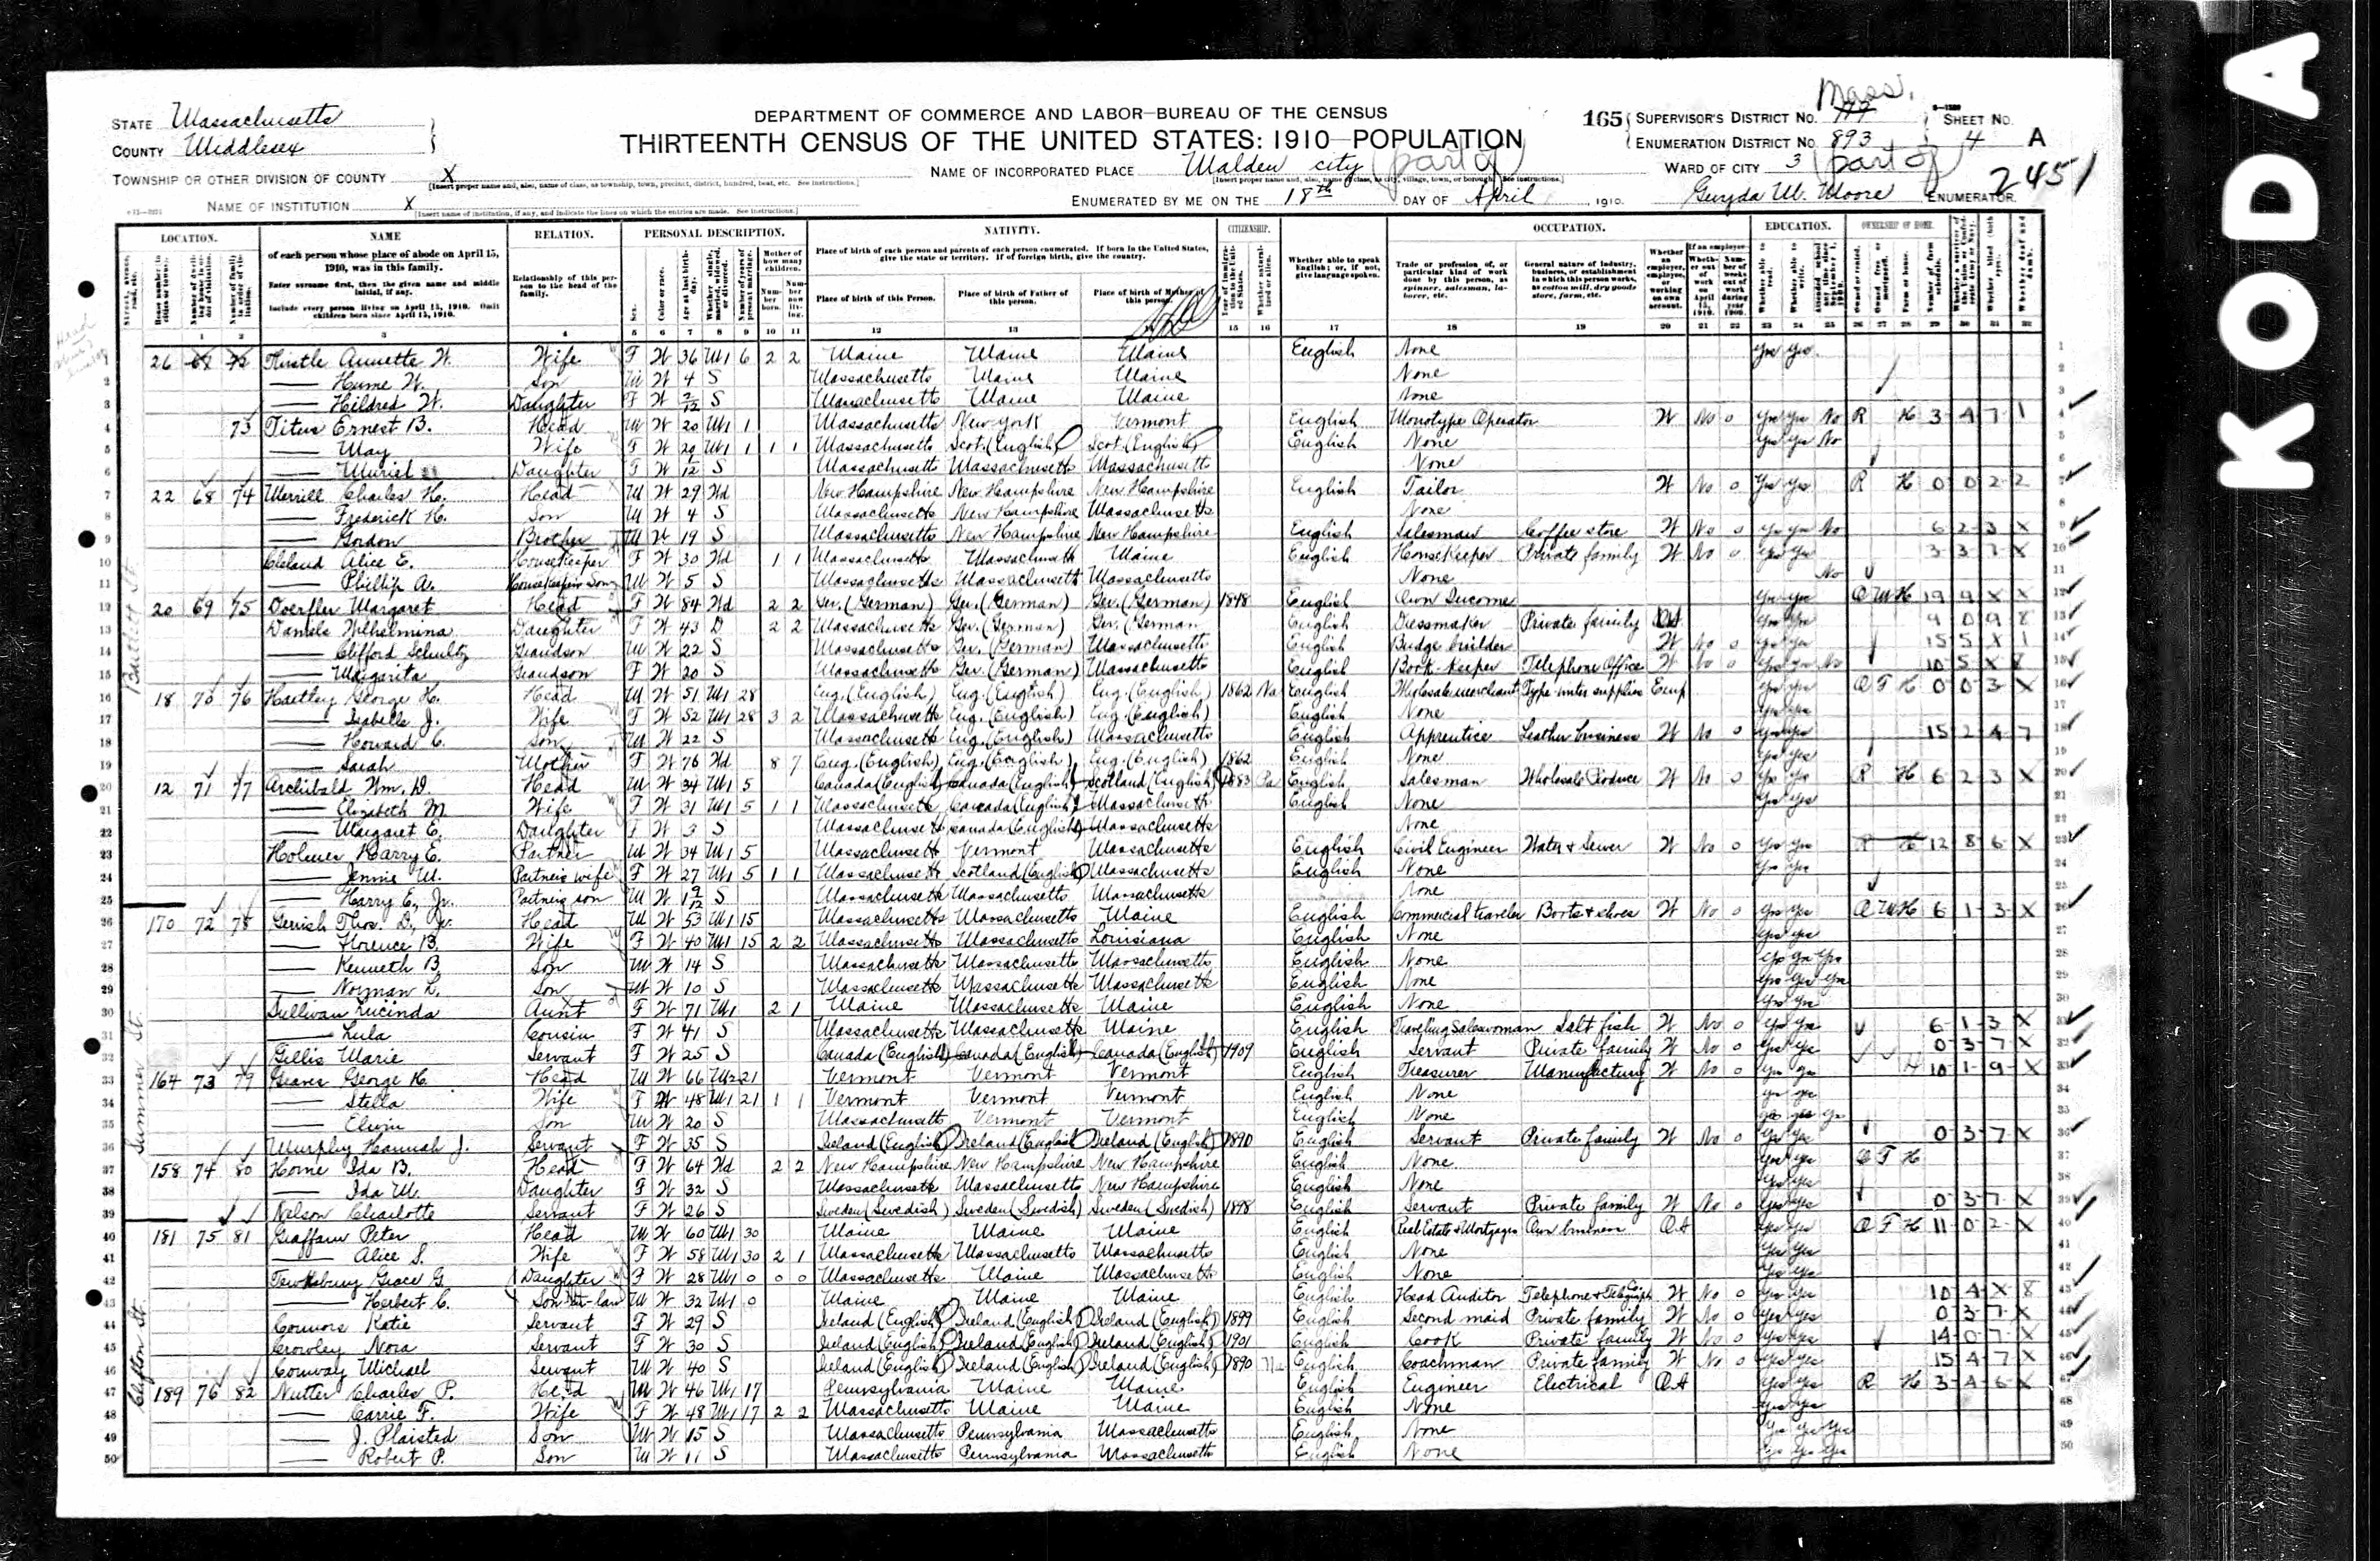 KODA
Mass.
STATE Massachusetts
COUNTY Middlesex
TOWNSHIP OR OTHER DIVISION OF COUNTY X
NAME OF INSTITUTION X
DEPARTMENT OF COMMERCE AND LABOR—BUREAU OF THE CENSUS
THIRTEENTH CENSUS OF THE UNITED STATES: 1910—POPULATION
NAME OF INCORPORATED PLACE Malden city (part of)
ENUMERATED BY ME ON THE 18th DAY OF April, 1910.
165 SUPERVISOR'S DISTRICT No.
ENUMERATION DISTRICT No. 893
SHEET No. 4 A
WARD OF CITY 3 (part of)
2451
W. Moore ENUMERATOR.
LOCATION. NAME RELATION. PERSONAL DESCRIPTION. NATIVITY. CITIZENSHIP. OCCUPATION. EDUCATION. OWNERSHIP OF HOME.
of each person whose place of abode on April 15, 1910, was in this family.
Enter surname first, then the given name and middle initial, if any.
Include every person living on April 15, 1910. Omit children born since April 15, 1910.
Relationship of this person to the head of the family.
Place of birth of each person and parents of each person enumerated. If born in the United States, give the state or territory. If of foreign birth, give the country.
Place of birth of this Person. Place of birth of Father of this person. Place of birth of Mother of this person.
Whether able to speak English; or, if not, give language spoken.
Trade or profession of, or particular kind of work done by this person, as spinner, salesman, laborer, etc.
General nature of industry, business, or establishment in which this person works, as cotton mill, dry goods store, farm, etc.
1 26 Thistle Annette W. Wife F W 36 M1 6 2 2 Maine Maine Maine English None yes yes
2 — Hume W. Son M W 4 S Massachusetts Maine Maine None
3 — Hildred W. Daughter F W 2/12 S Massachusetts Maine Maine None
4 73 Titus Ernest B. Head M W 20 M1 1 Massachusetts New York Vermont English Monotype Operator W No 0 yes yes No R H 3 4 7 1
5 — May Wife F W 20 M1 1 1 1 Massachusetts Scot. (English) Scot. (English) English None yes yes No
6 — Muriel Daughter F W S Massachusetts Massachusetts Massachusetts None
7 22 68 74 Merrill Charles H. Head M W 29 Wd New Hampshire New Hampshire New Hampshire English Tailor W No 0 yes yes R H 0 0 2 2
8 — Frederick H. Son M W 4 S Massachusetts New Hampshire Massachusetts None
9 — Gordon Brother M W 19 S Massachusetts New Hampshire New Hampshire English Salesman Coffee store W No 0 yes yes No 6 2 3 X
10 Cleland Alice E. Housekeeper F W 30 Wd 1 1 Massachusetts Massachusetts Maine English Housekeeper Private family W No 0 yes yes 3 3 7 X
11 — Phillip A. Housekeepers Son M W 5 S Massachusetts Massachusetts Massachusetts None No
12 20 69 75 Doerfler Margaret Head F W 84 Wd 2 2 Ger. (German) Ger. (German) Ger. (German) 1848 English Own Income yes yes O M H 19 9 X X
13 Daniels Wilhelmina Daughter F W 43 D 2 2 Massachusetts Ger. (German) Ger. (German English Dressmaker Private family OA yes yes 9 0 9 8
14 — Clifford Schultz Grandson M W 22 S Massachusetts Ger. (German) Massachusetts English Bridge builder W No 0 yes yes 15 5 X 1
15 — Margarita Grandson F W 20 S Massachusetts Ger. (German) Massachusetts English Book-keeper Telephone Office W No 0 yes yes No 10 5 X 8
16 18 70 76 Hartley George H. Head M W 51 M1 28 Eng. (English) Eng. (English) Eng. (English) 1862 Na English Wholesale merchant Type writer supplies Emp yes yes O F H 0 0 3 X
17 — Isabelle J. Wife F W 52 M1 28 3 2 Massachusetts Eng. (English) Eng. (English) English None yes yes
18 — Howard C. Son M W 22 S Massachusetts Eng. (English) Massachusetts English Apprentice Leather business W No 0 yes yes 15 2 4 7
19 — Sarah Mother F W 76 Wd 8 7 Eng. (English) Eng. (English) Eng. (English) 1862 English None yes yes
20 12 71 77 Archibald Wm. D. Head M W 34 M1 5 Canada (English) Canada (English) Scotland (English) 1883 Pa English Salesman Wholesale Produce W No 0 yes yes R H 6 2 3 X
21 — Elizabeth M. Wife F W 31 M1 5 1 1 Massachusetts Canada (English) Massachusetts English None yes yes
22 — Margaret E. Daughter F W 3 S Massachusetts Canada (English) Massachusetts None
23 Holmes Harry E. Partner M W 34 M1 5 Massachusetts Vermont Massachusetts English Civil Engineer Water & Sewer W No 0 yes yes R H 12 8 6 X
24 — Jennie M. Partners wife F W 27 M1 5 1 1 Massachusetts Scotland (English) Massachusetts English None yes yes
25 — Harry E. Jr. Partners son M W S Massachusetts Massachusetts Massachusetts None
26 170 72 78 Gerrish Thos. D. Jr. Head M W 53 M1 15 Massachusetts Massachusetts Maine English Commercial traveler Boots & shoes W No 0 yes yes O M H 6 1 3 X
27 — Florence B. Wife F W 40 M1 15 2 2 Massachusetts Massachusetts Louisiana English None yes yes
28 — Kenneth B. Son M W 14 S Massachusetts Massachusetts Massachusetts English None yes yes yes
29 — Norman L. Son M W 10 S Massachusetts Massachusetts Massachusetts English None yes yes yes
30 Sullivan Lucinda Aunt F W 71 2 1 Maine Massachusetts Maine English None yes yes
31 — Lula Cousin F W 41 S Massachusetts Massachusetts Maine English Travelling Saleswoman Salt fish W No 0 yes yes 6 1 3 X
32 Gillis Marie Servant F W 25 S Canada (English) Canada (English) Canada (English) 1909 English Servant Private family W No 0 yes yes 0 3 7 X
33 164 73 79 George H. Head M W 66 M2 21 Vermont Vermont Vermont English Treasurer Manufactury W No 0 yes yes H 10 1 9 X
34 — Stella Wife F W 48 M1 21 1 1 Vermont Vermont Vermont English None yes yes
35 — Son M W 20 S Massachusetts Vermont Vermont English None yes yes yes
36 Murphy Hannah J. Servant F W 35 S Ireland (English) Ireland (English) Ireland (English) 1890 English Servant Private family W No 0 yes yes 0 3 7 X
37 158 74 80 Horne Ida B. Head F W 64 Wd 2 2 New Hampshire New Hampshire New Hampshire English None yes yes O F H
38 — Ida M. Daughter F W 32 S Massachusetts Massachusetts New Hampshire English None yes yes
39 Nelson Charlotte Servant F W 26 S Sweden (Swedish) Sweden (Swedish) Sweden (Swedish) 1898 English Servant Private family W No 0 yes yes 0 3 7 X
40 181 75 81 Graffam Peter Head M W 60 M1 30 Maine Maine Maine English Real Estate & Mortgages Own business OA yes yes O F H 11 0 2 X
41 — Alice S. Wife F W 58 M1 30 2 1 Massachusetts Massachusetts Massachusetts English None yes yes
42 Tewksbury Grace G. Daughter F W 28 M1 0 0 0 Massachusetts Maine Massachusetts English None yes yes
43 — Herbert C. Son-in-law M W 32 M1 0 Maine Maine Maine English Head Auditor Telephone & Telegraph Co. W No 0 yes yes 10 4 X 8
44 Connors Katie Servant F W 29 S Ireland (English) Ireland (English) Ireland (English) 1899 English Second maid Private family W No 0 yes yes 0 3 7 X
45 Crowley Nora Servant F W 30 S Ireland (English) Ireland (English) Ireland (English) 1901 English Cook Private family W No 0 yes yes 14 0 7 X
46 Conway Michael Servant M W 40 S Ireland (English) Ireland (English) Ireland (English) 1890 Na English Coachman Private family W No 0 yes yes 15 4 7 X
47 189 76 82 Nutter Charles P. Head M W 46 M1 17 Pennsylvania Maine Maine English Engineer Electrical OA yes yes R H 3 4 6 X
48 — Carrie F. Wife F W 48 M1 17 2 2 Massachusetts Maine Maine English None yes yes
49 — J. Plaisted Son M W 15 S Massachusetts Pennsylvania Massachusetts English None yes yes yes
50 — Robert P. Son M W 11 S Massachusetts Pennsylvania Massachusetts English None yes yes yes
Bartlett St.
Summer St.
Clifton St.